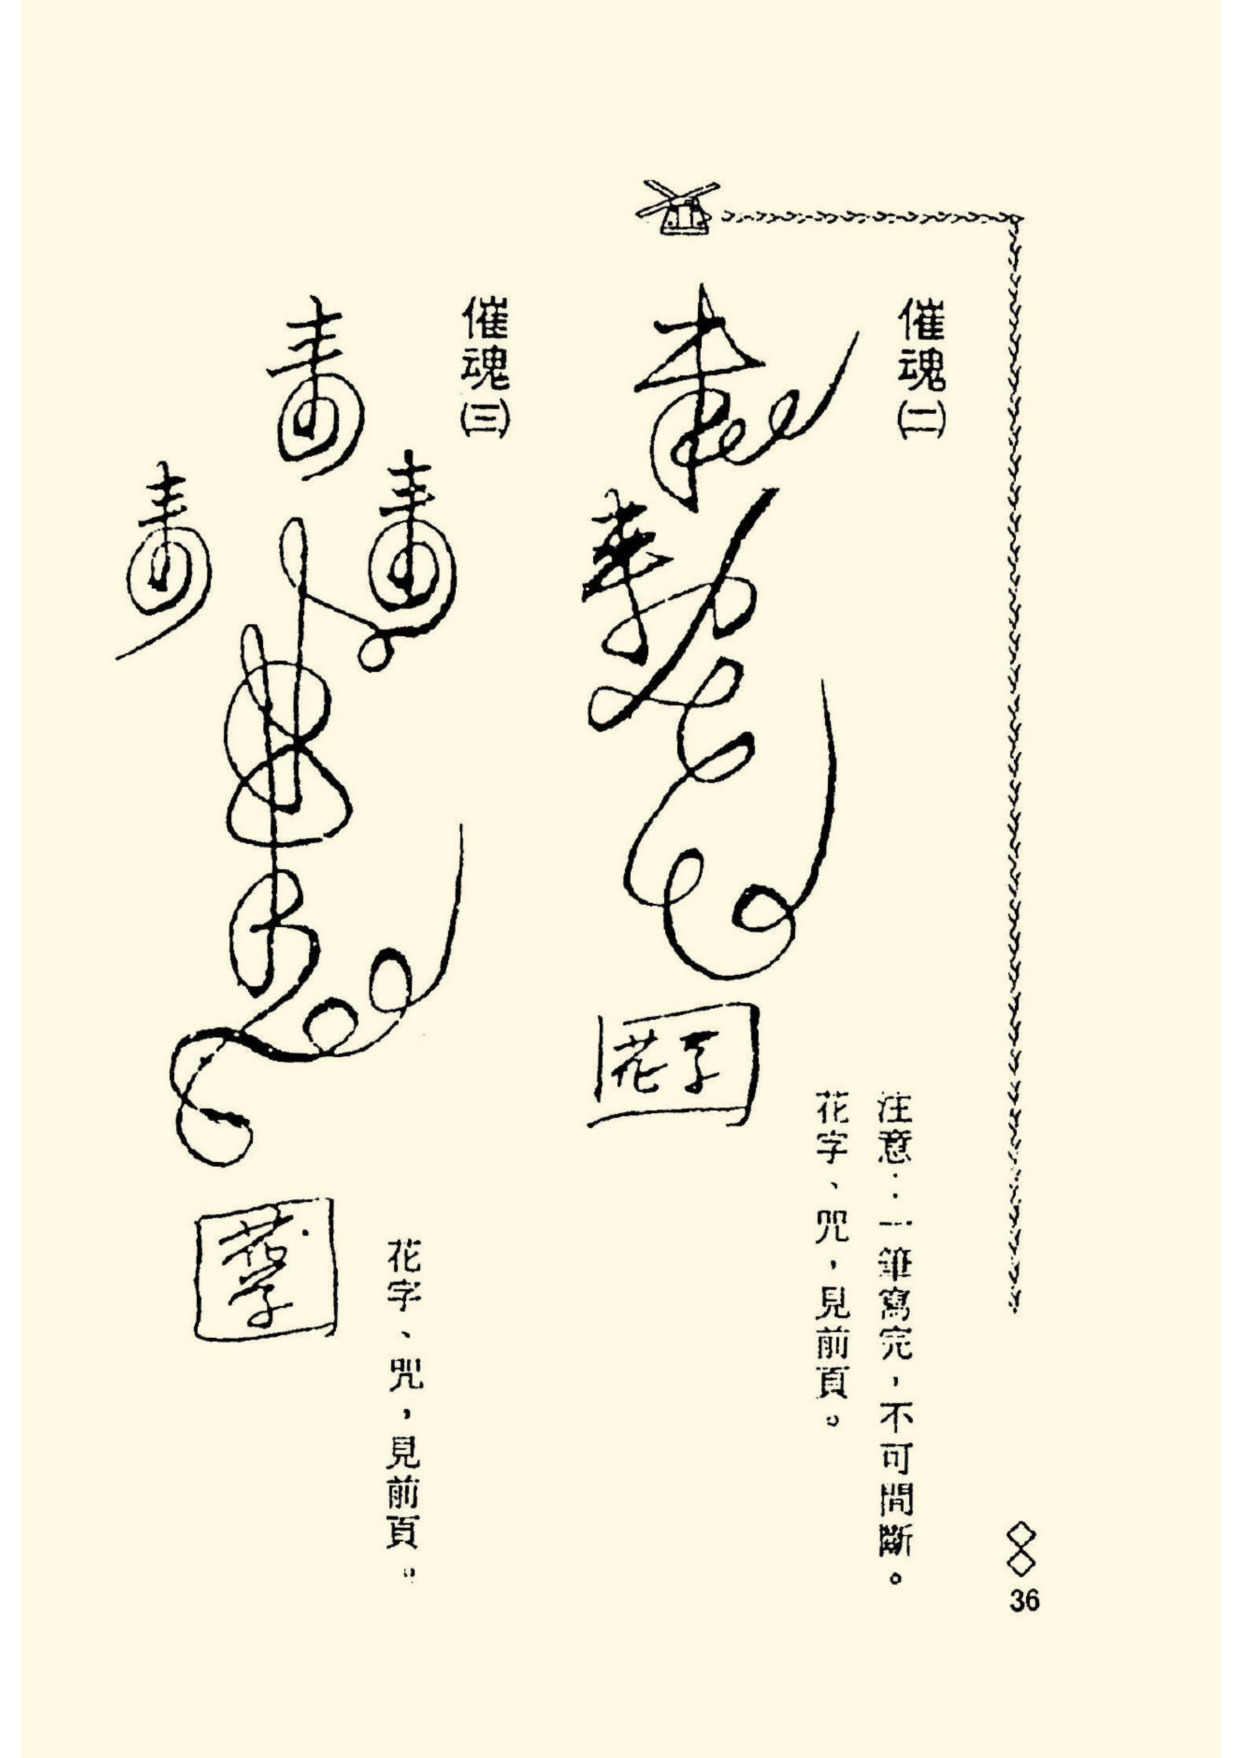 催魂㈡
注意：一筆寫完，不可間斷。
花字、咒，見前頁。
花字
催魂㈢
花字、咒，見前頁。
花字
36